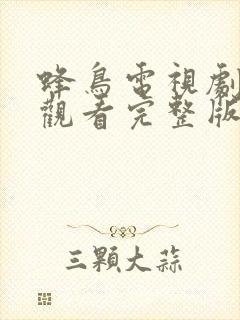 蜂鳥電視劇
觀看完整版
三顆大蒜